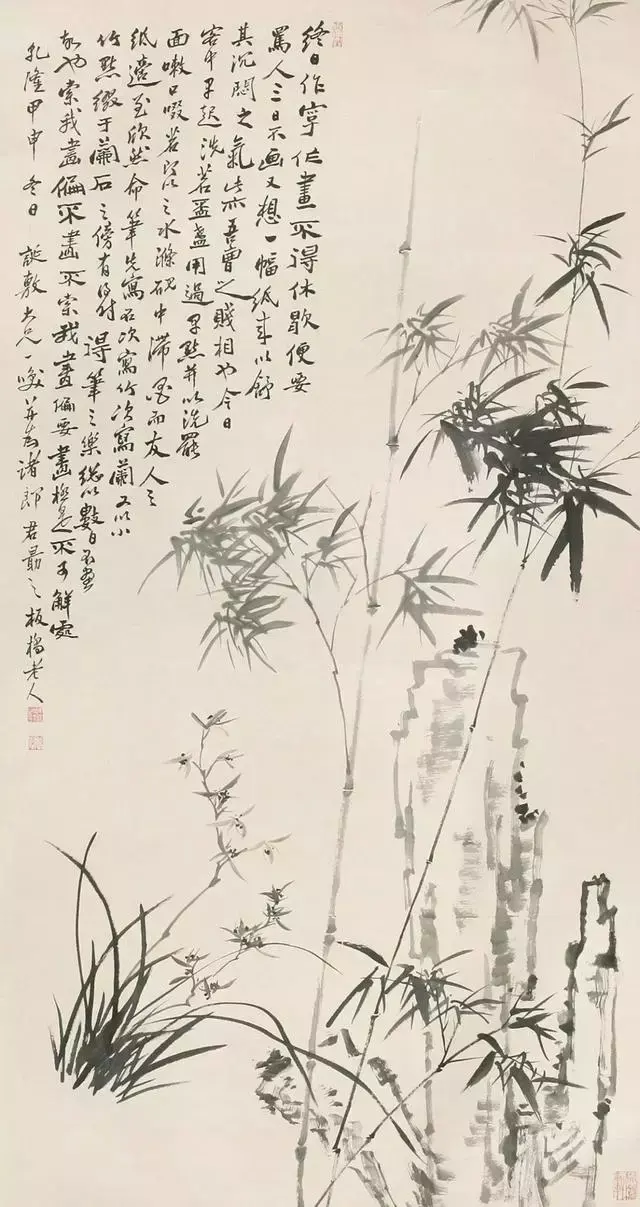 終日作字作畫不得休歇便要
罵人三日不画又想一幅紙来以舒
其沉悶之氣此亦吾曹之賤相也今日
客中早起洗茗盃盞用過早點并以洗罷
面嗽口啜茗之水滌硯中滞墨而友人之
紙適至欣然命筆先寫石次寫竹次寫蘭又以小
竹點綴于蘭石之傍有得时得筆之樂總以數日不畫
故也索我畫偏不畫不索我畫偏要畫極是不可解處
乾隆甲申冬日 誕敷大兄一咲并為諸郎君勗之板橋老人